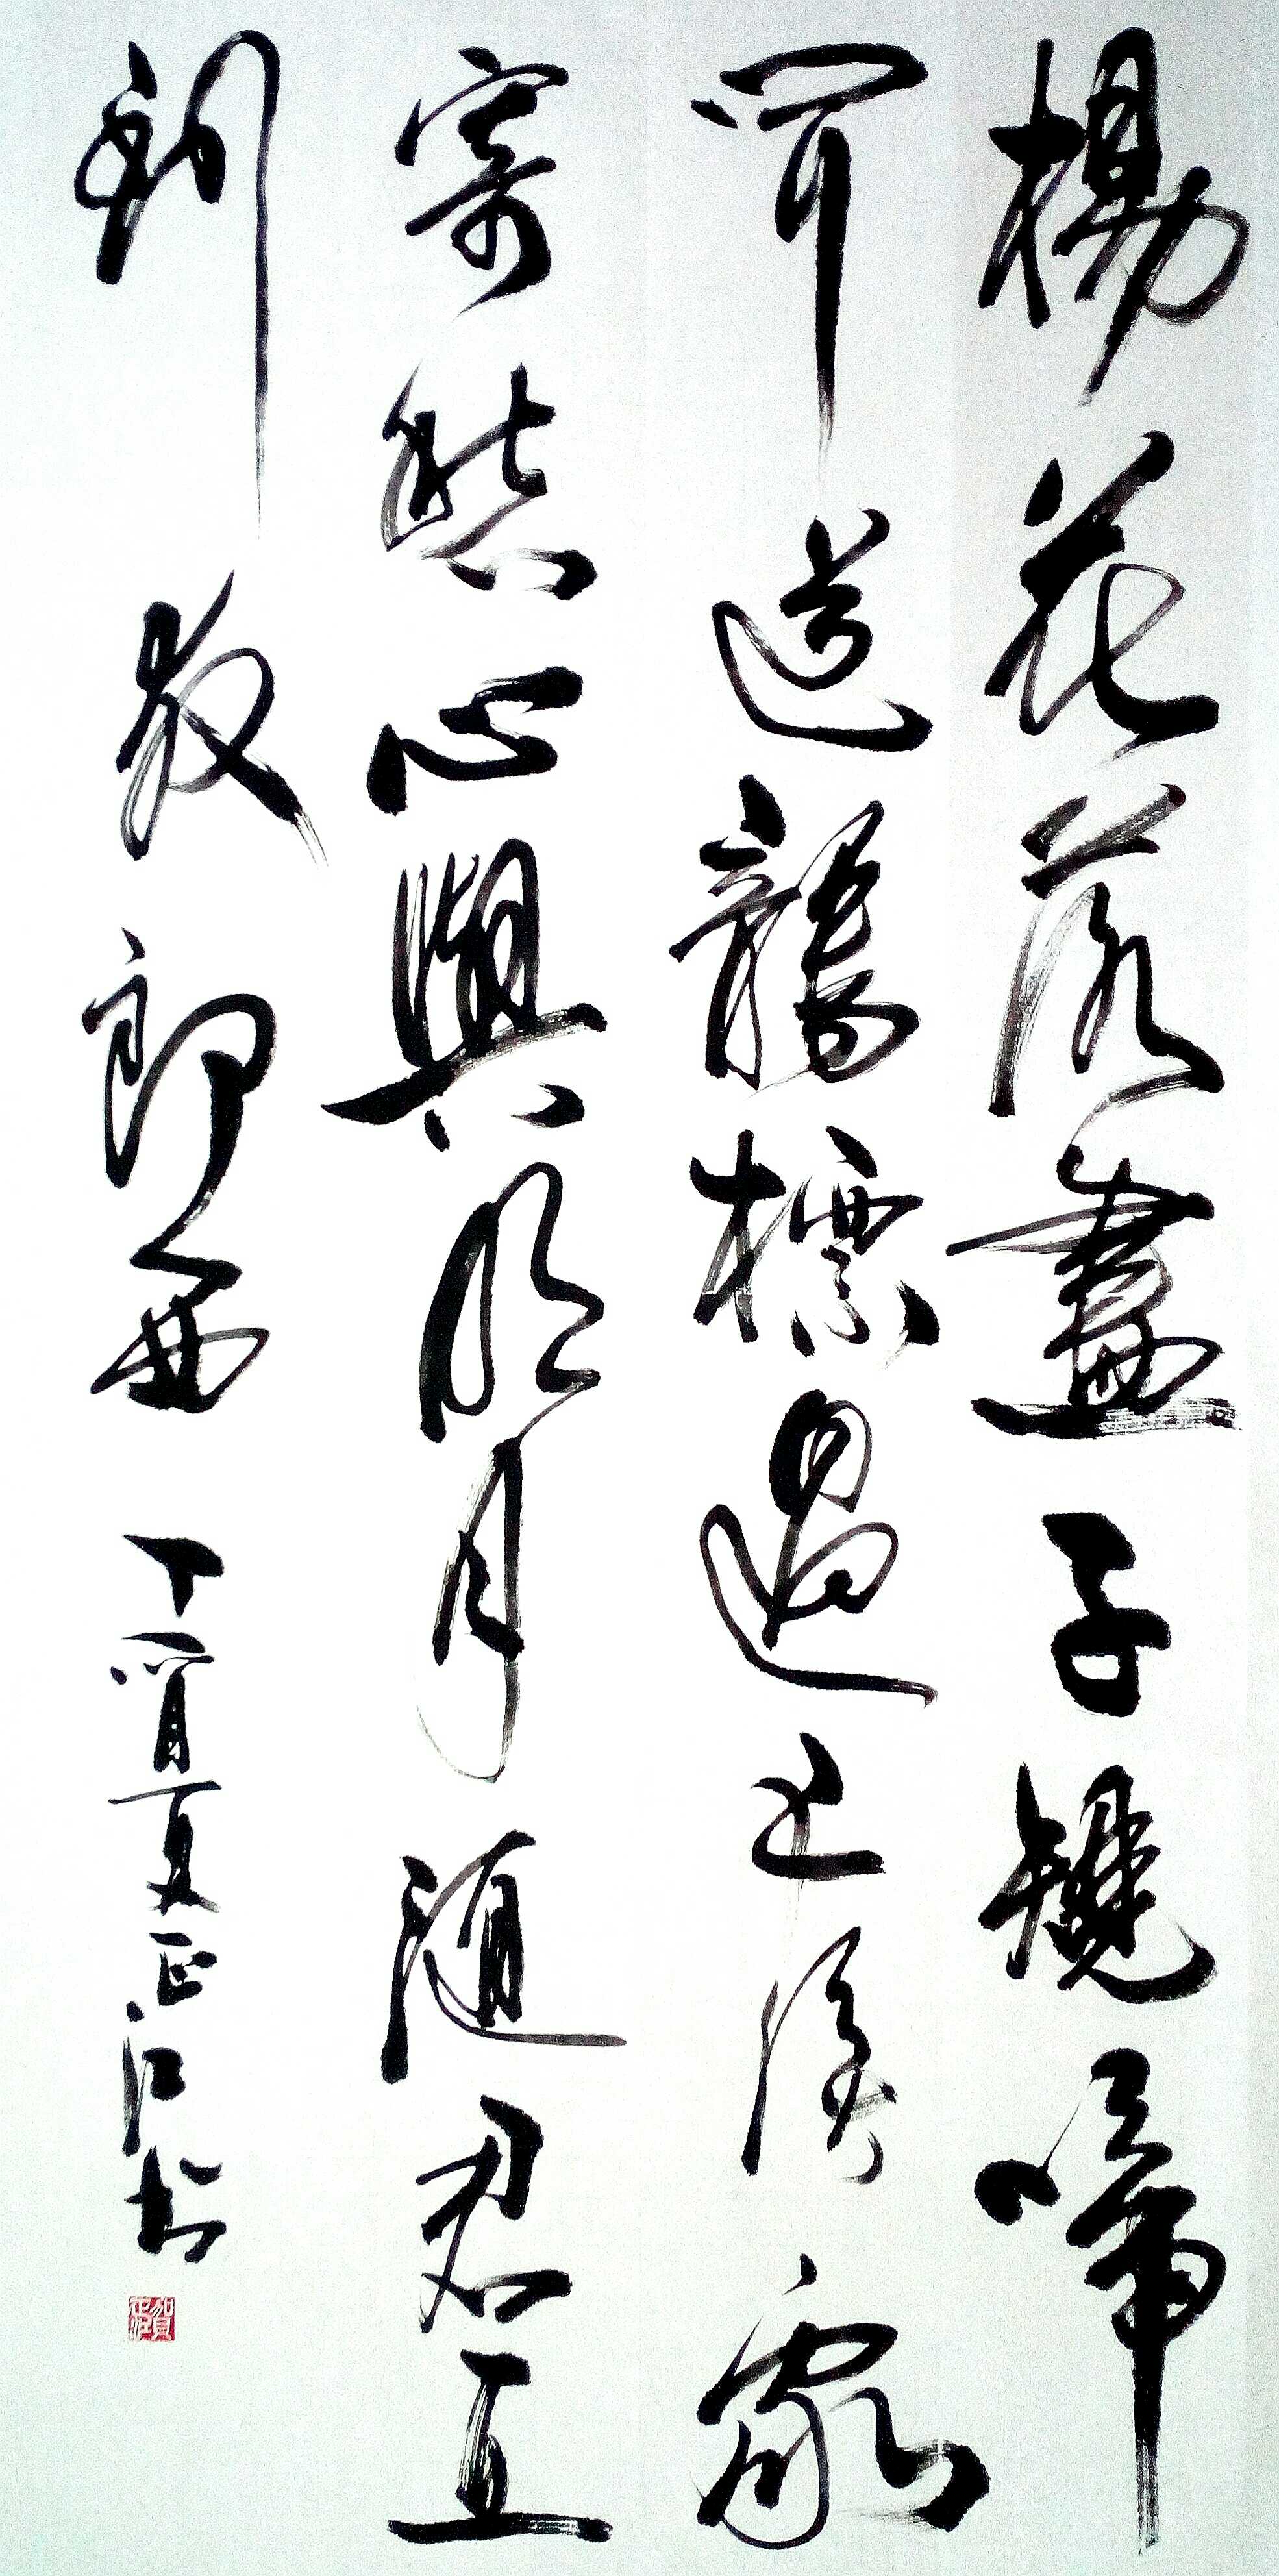 楊花落盡子規啼
聞道龍標過五溪我
寄愁心與明月隨君直
到夜郎西 丁酉夏正江書
賀正江